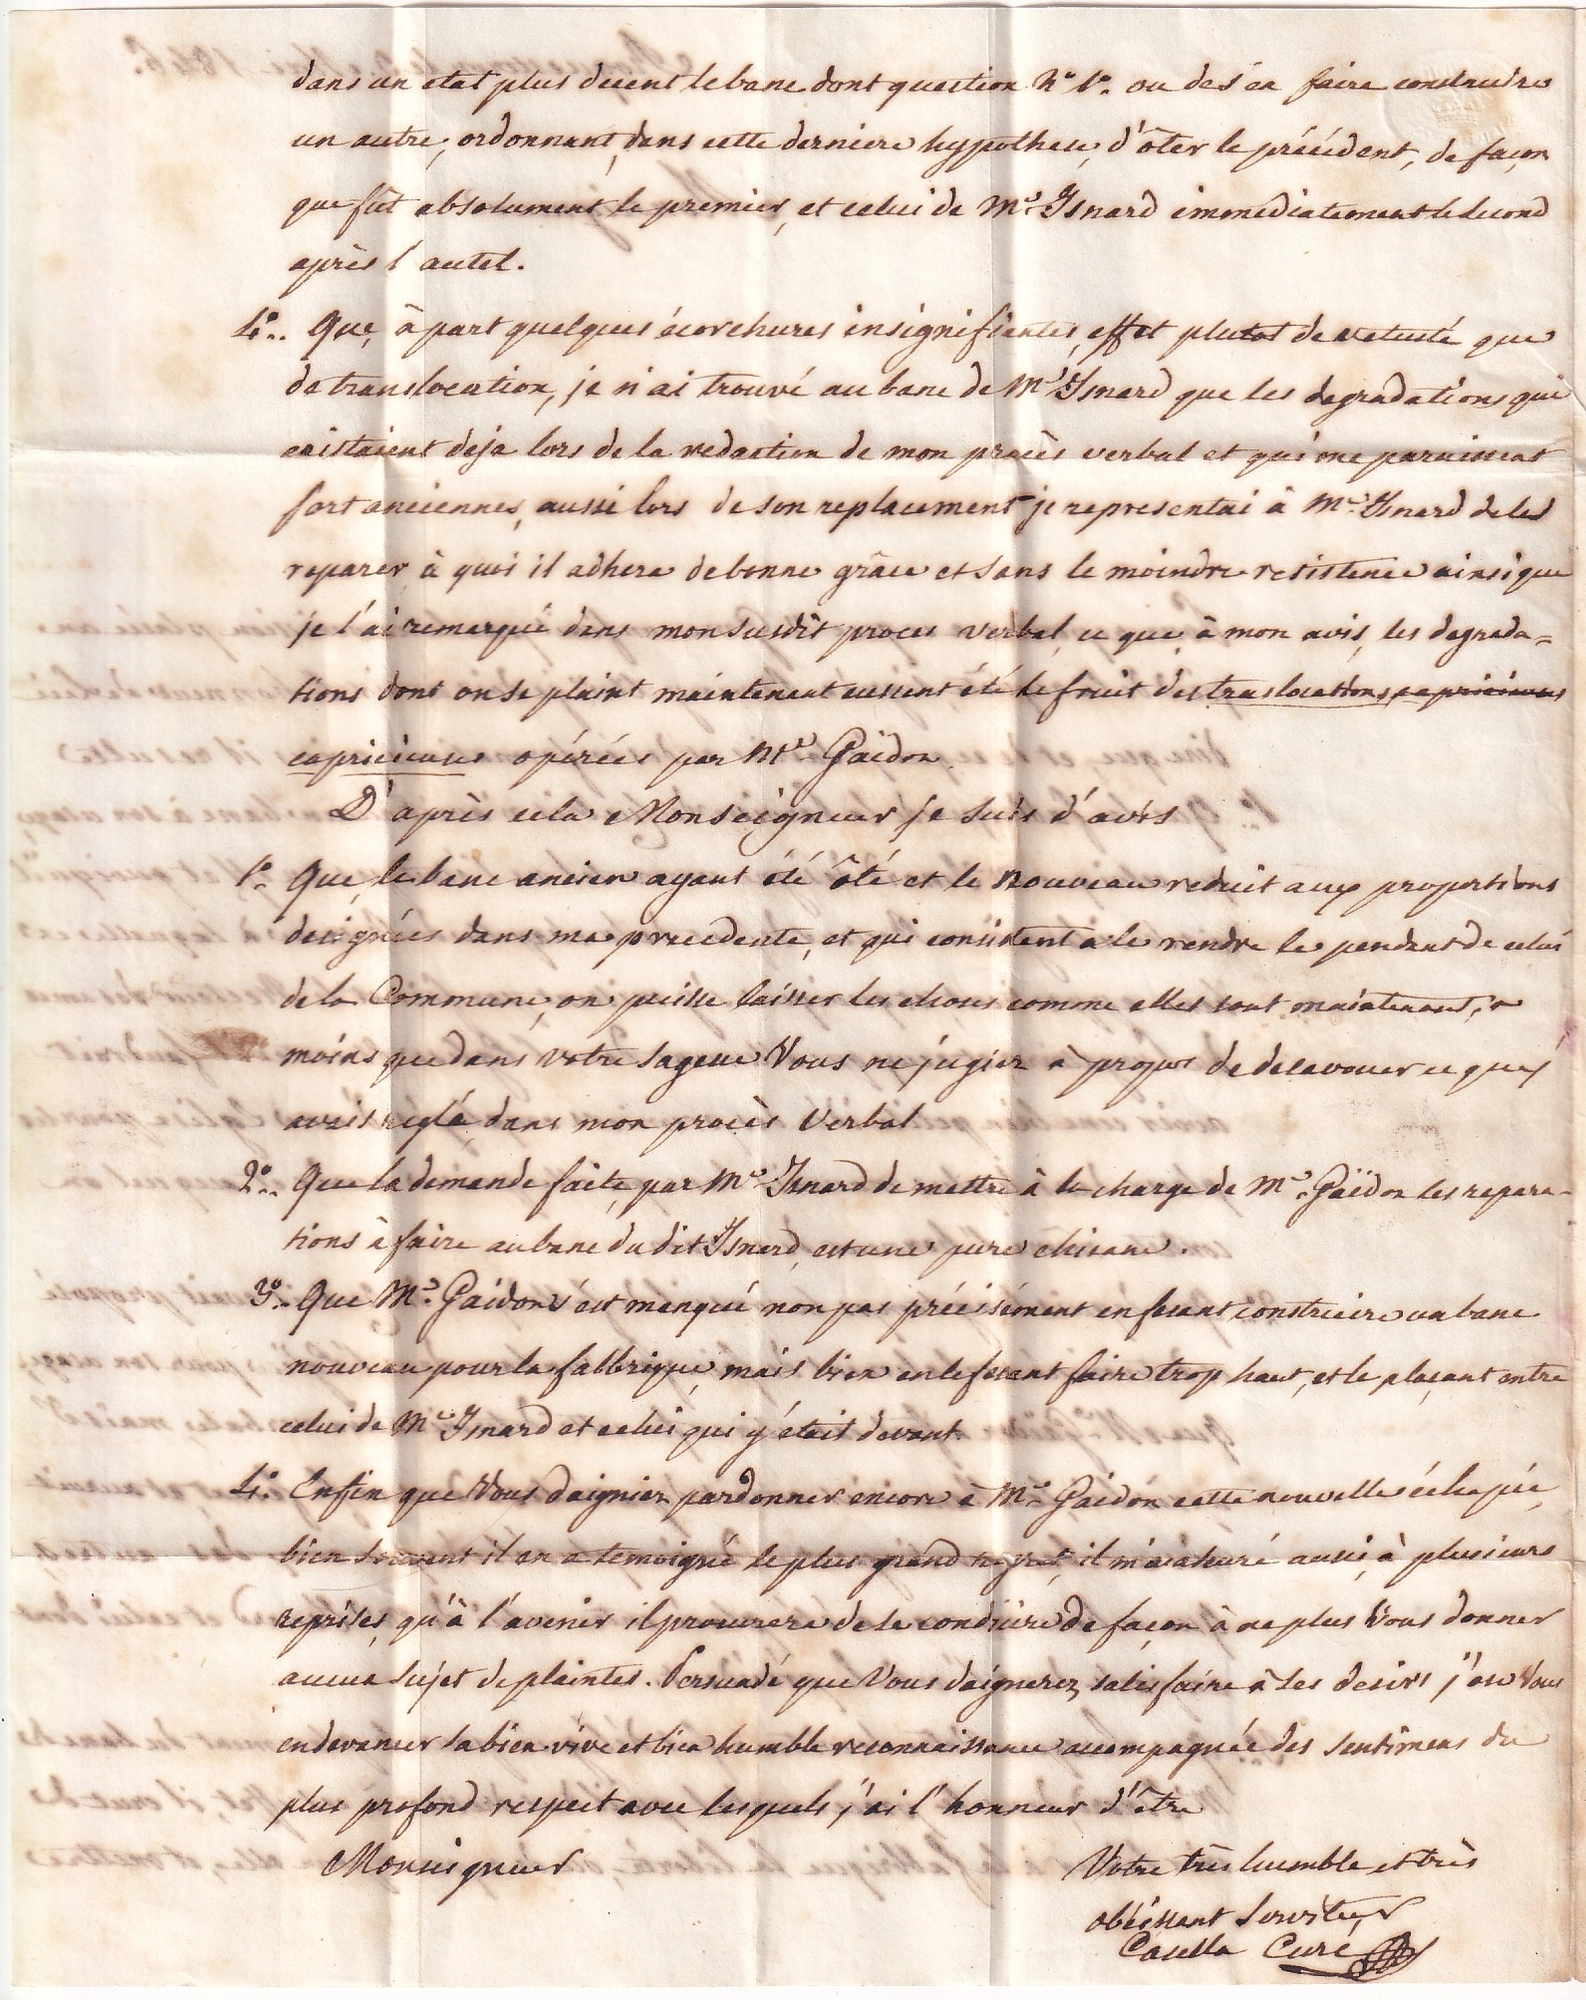 dans un etat plus decent le banc dont question N.º 1.º ou de s'en faire construire
un autre, ordonnant, dans cette derniere hypothese, d'ôter le précédent, de façon
que fût absolument le premier, et celui de M.r Isnard immediatement le second
après l'autel.
4.º Que, à part quelques écorchures insignifiantes, effet plutot de vetusté que
de translocation, je n'ai trouvé au banc de M.r Isnard que les degradations qui
existaient deja lors de la redaction de mon procès verbal et qui me paraissent
fort anciennes, aussi lors de son replacement je representai à M.r Isnard de les
reparer, à quoi il adhera de bonne grâce et sans le moindre resistence ainsi que
je l'ai remarqué dans mon susdit proces verbal, ce que, à mon avis, les degrada=
tions dont on se plaint maintenant eussent été le fruit des traslocations capricieuses
capricieuses opérées par M.r Gaïdon.
D'après cela Monseigneur je suis d'avis
1.º Que, le banc ancien ayant été ôté et le nouveau reduit aux proportions
designées dans ma precedente, et qui consistent à le rendre le pendant de celui
de la Commune, on puisse laisser les choses comme elles sont maintenant, à
moins que dans votre sagesse Vous ne jugiez à propos de desavouer ce que j'
avais reglé dans mon procès Verbal
2.º Que la demande faite par M.r Isnard de mettre à la charge de M.r Gaïdon les repara-
tions à faire au banc du dit Isnard, est une pure chicane.
3.º Que M.r Gaïdon s'est manqué non pas précisément en fesant construire un banc
nouveau pour la fabbrique, mais bien en le fesant faire trop haut, et le plaçant entre
celui de M.r Isnard et celui qui y était devant.
4.º Enfin que Vous daigniez pardonner encore à M.r Gaïdon cette nouvelle échapée,
bien souvent il en a temoigné le plus grand regret, il m'a assuré aussi, à plusieurs
reprises, qu'à l'avenir il procurera de se conduire de façon à ne plus Vous donner
aucun sujet de plaintes. Persuadé que Vous daignerez satisfaire à ses desirs j'ose Vous
en devancer sa bien vive et bien humble reconnaissance accompagnée des sentimens du
plus profond respect avec lesquels j'ai l'honneur d'être
Monseigneur
Votre très humble et très
obéissant Serviteur
Casella Curé